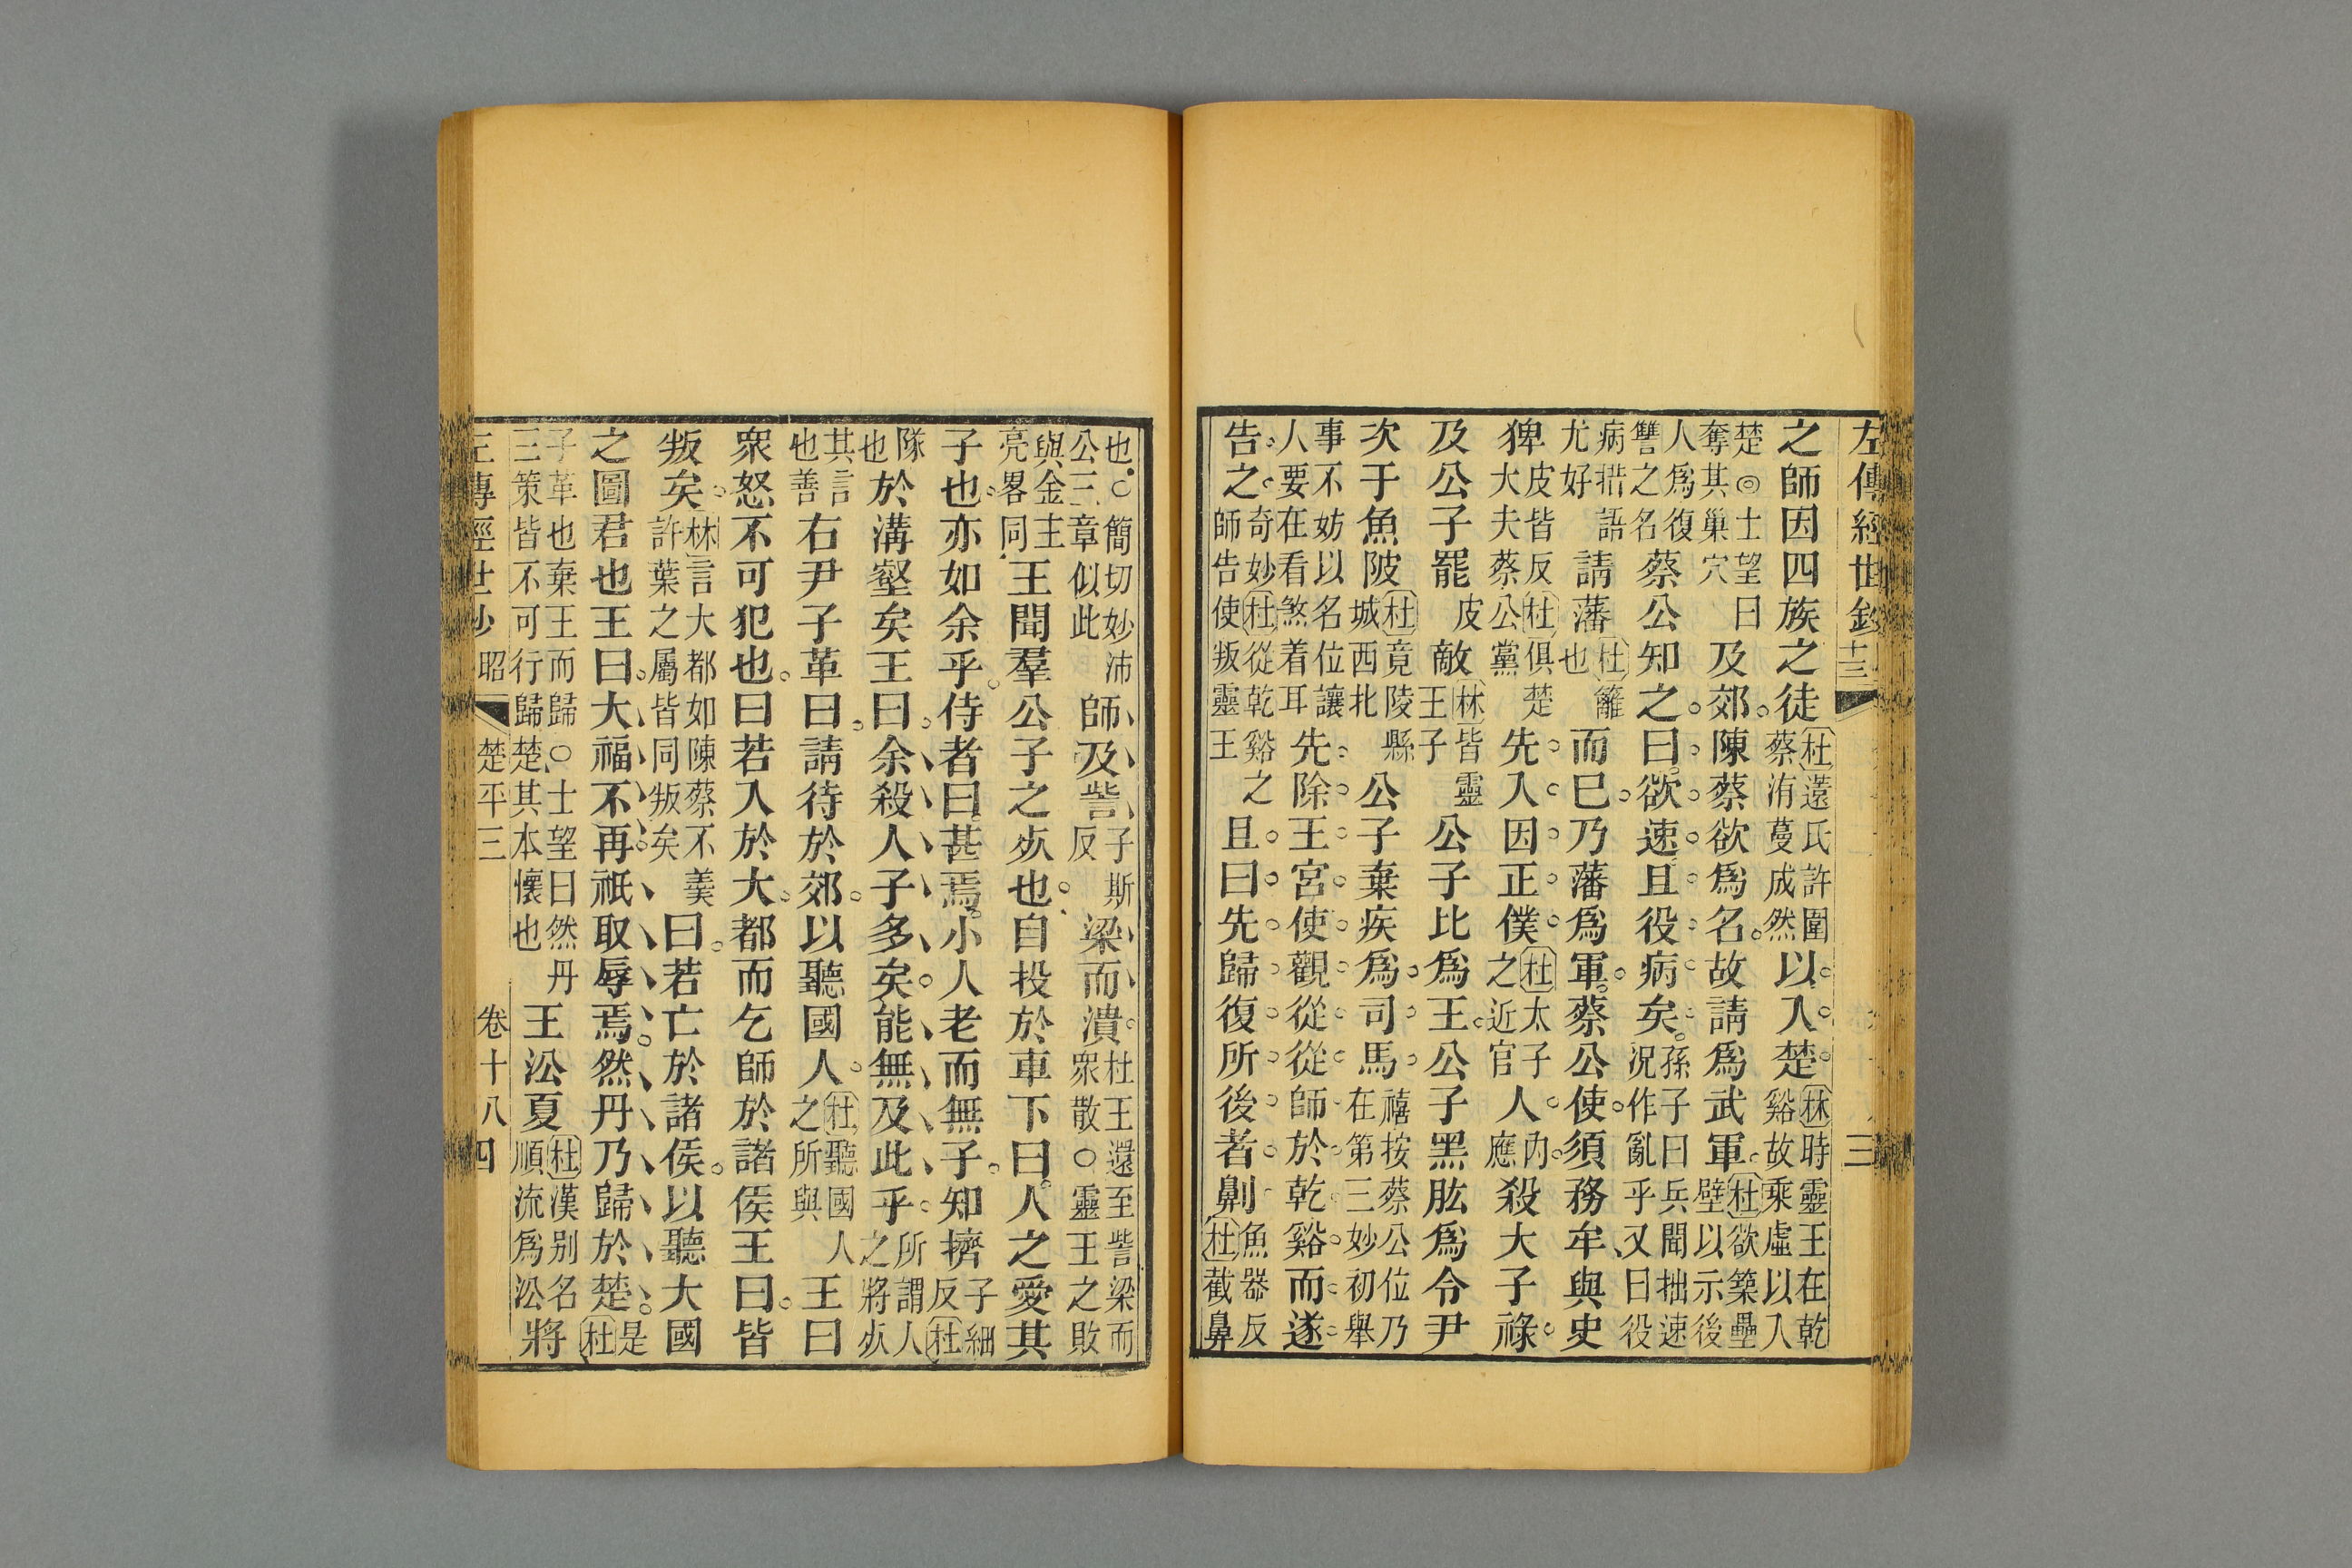 左傳經世鈔 十三 三
之師因四族之徒杜薳氏許圍蔡洧蔓成然以入楚林時靈王在乾谿故乘虛以入
楚◎士望曰奪其巢穴及郊陳蔡欲爲名故請爲武軍杜欲築壘壁以示後
人爲復讐之名蔡公知之曰欲速且役病矣孫子曰兵聞拙速況作亂乎又曰役
病措語尤好請藩杜籬也而已乃藩爲軍蔡公使須務牟與史
猈皮皆反杜俱楚大夫蔡公黨先入因正僕杜太子之近官人內應殺大子祿
及公子罷皮敵林皆靈王子公子比爲王公子黑肱爲令尹
次于魚陂杜竟陵縣城西北公子棄疾爲司馬禧按蔡公位乃在第三妙初舉
事不妨以名位讓人要在看煞着耳先除王宮使觀從從師於乾谿而遂
告之奇妙杜從乾谿之師告使叛靈王且曰先歸復所後者劓魚器反杜截鼻
也○簡切妙沛公三章似此師及訾子斯反梁而潰杜王還至訾梁而衆散○靈王之敗
與金主亮畧同王聞羣公子之㱔也自投於車下曰人之愛其
子也亦如余乎侍者曰甚焉小人老而無子知擠子細反杜
隊也於溝壑矣王曰余殺人子多矣能無及此乎所謂人之將㱔
其言也善右尹子革曰請待於郊以聽國人杜聽國人之所與王曰
衆怒不可犯也曰若入於大都而乞師於諸侯王曰皆
叛矣林言大都如陳蔡不羹許葉之屬皆同叛矣曰若亡於諸侯以聽大國
之圖君也王曰大福不再祇取辱焉然丹乃歸於楚杜是
子革也棄王而歸○士望曰然丹三策皆不可行歸楚其本懷也王沿夏杜漢别名順流爲沿將
左傳經世鈔 昭 楚平三 卷十八 四